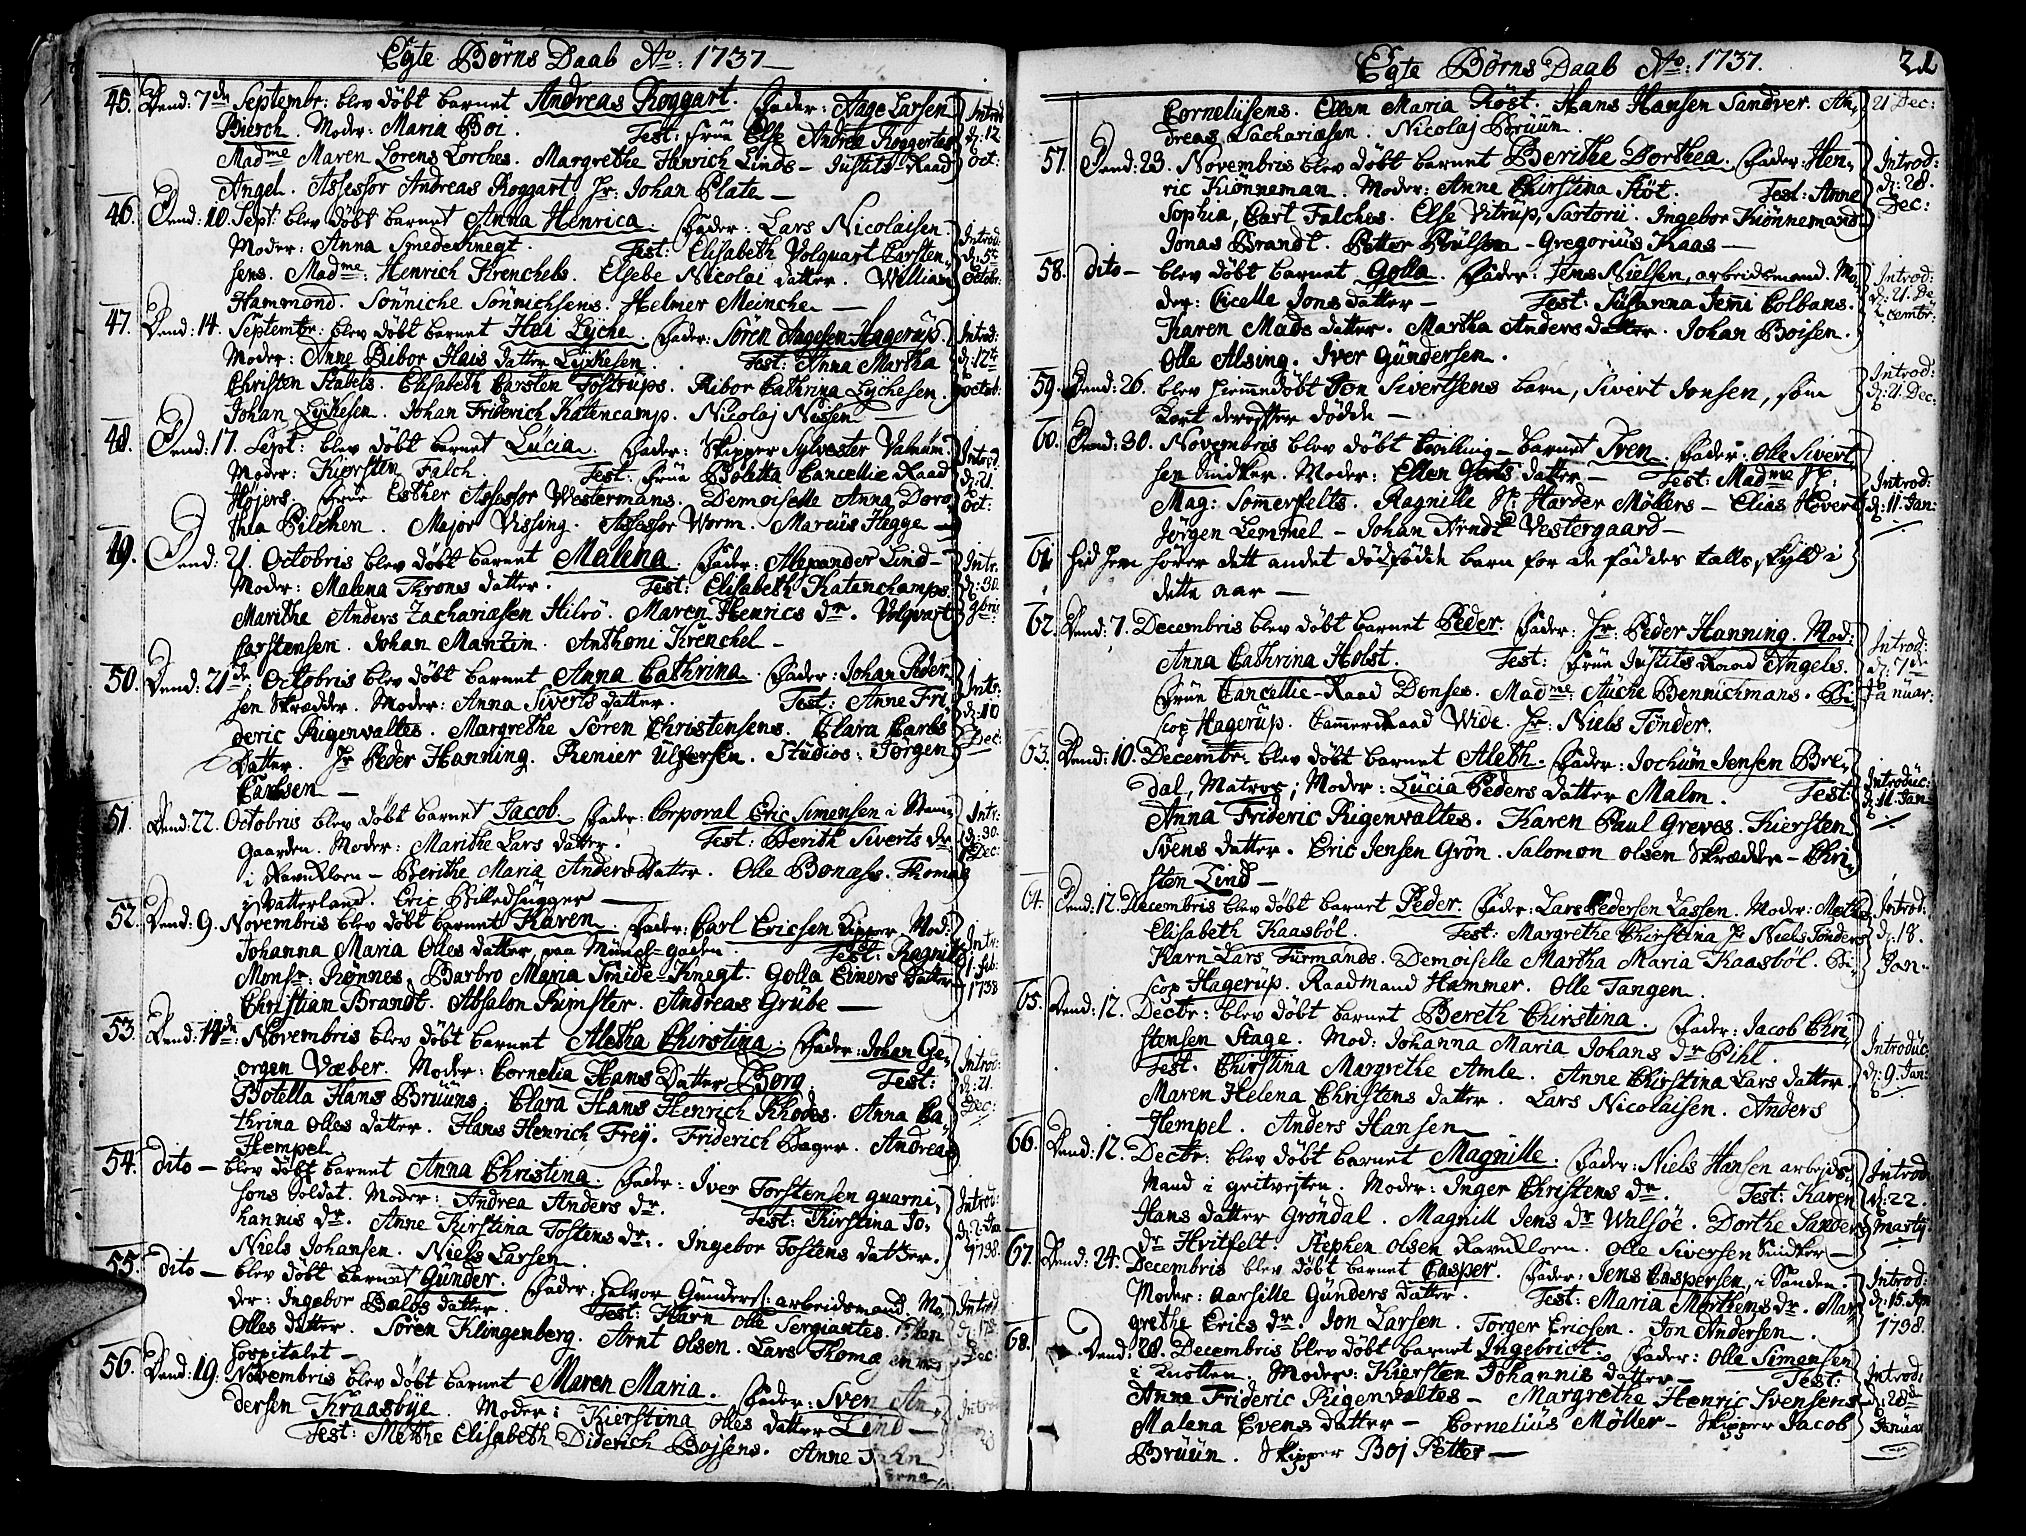 Egte Børns Daab Ao: 1737
45. Dend: 7de Septembr: blev døbt barnet Andreas Roggart. Fader: Aage Larsen
Bierch. Moder: Maria Boi. Test: Frue Else Andrea Roggertes
Madme Maren Lorens Lorches. Margrethe Henrich Linds – Justits-Raad
Angel. Assessor Andreas Roggart Hr: Johan Plate –
Introd d: 12 Oct:
46. Dend: 10. Sept: blev døbt barnet Anna Henrica. Fader: Lars Nicolaisen.
Moder: Anna Smedeknegt. Test: Elisabeth Volquart Carsten-
sens. Madme: Henrich Krenchels. Elsebe Nicolai datter. William
Hammond. Sønniche Sønnichsens. Helmer Meinche –
Introd: d: 5te Octobr:
47. Dend: 14. Septembr: blev døbt barnet Hai Lyche. Fader: Søren Aagesen Hagerup.
Moder: Anne Bibor Hais datter Lykesen. Test: Anna Martha
Christen Stabels. Elisabeth Carsten Tostrups. Ribor Cathrina Lychesen.
Johan Lykesen. Johan Friderich Katencamp. Nicolaj Nissen –
Introd: d: 12te octob:
48. Dend: 17. Sept: blev døbt barnet Lucia. Fader: Skipper Sylvester Valnum.
Moder: Kiersten Falch. Test: Frue Boletta Cancellie Raad
Højers. Frue Esther Assessor Westermans. Demoiselle Anna Doro
thea Pilchen. Major Vissing. Assessor Worm. Marcus Hegge –
Introd. d: 21. Oct:
49. Dend: 21. Octobris blev døbt barnet Malena. Fader: Allexander Lind –
Moder: Malena Throns datter. Test: Elisabeth Katenchamps
Marithe Anders Zachariæsen Hilrö. Maren Henrics dr. Volqvart
Carstensen. Johan Mantzin. Anthoni Krenchel –
Intr. d: 30. 9bris
50. Dend: 21de Octobris blev døbt barnet Anna Cathrina. Fader: Johan Peder-
sen Skrædder. Moder: Anna Siverts datter. Test: Anne Fri-
deric Rigenvaltes. Margrethe Søren Christensens. Clara Carls
Datter. Hr Peder Hanning. Renier Ulfersen. Studios: Jørgen
Carlsen –
Intr: d: 10 Dec:
51. Dend: 22. Octobris blev døbt barnet Jacob. Fader: Corporal Eric Simensen i
Gaarden. Moder: Marithe Lars datter. Test: Berith Siverts dr
i Ravnkloen – Berithe Maria Anders datter. Olle Bonæs. Thomas
i Vatterland. Eric Billedhugger –
Intr: d: 30. Dec:
52. Dend: 9. Novembris blev døbt barnet Karen. Fader: Carl Ericsen Kipper. Mod:
Johanna Maria Olles datter paa Munch-gaden. Test: Ragnild
Monsr: Rønnes. Barbro Maria Smide-Knegt. Golla Einers datter
Christian Brandt. Absalon Rumster. Andreas Grube –
Intr: 1. Feb: 1738
53. Dend: 14de: Novembris blev døbt barnet Aletha Chirstina. Fader: Johan Ge-
orgen Væber. Moder: Cornelia Hans Datter Borg. Test:
Botella Hans Bruuns. Clara Hans Henrich Rhodes. Anna Ca-
thrina Olles datter. Hans Henrich Frey. Friderich Bager. Andreas
Hempel
Introd: d: 21. Dec:
54. dito – blev døbt barnet Anna Christina. Fader: Iver Torstensen quarni-
sons Soldat. Moder: Andrea Anders dr. Test: Kirstina Jo-
hannis dr. Anne Kirstina Tostens dr: Ingebor Tostens datter.
Niels Johansen. Niels Larsen.
Introd: d: 2. Jan 1738.
55. dito – blev døbt barnet Gunder. Fader: Halvor Gunders: arbeidsmand. Mo-
der: Ingebor Baløs datter. Test: Karn Olle Sergiantes. Ellen
Olles datter. Søren Klingenberg. Arnt Olsen. Lars Thoma
Hospitalet –
Introd d: 17de Dec:
56. Dend: 19. Novembris blev døbt barnet Maren Maria. Fader: Sven An-
dersen Kraasbye. Moder: Kierstina Olles datter Lind –
Test: Methe Elisabeth Diderich Bojsens. Anne
Introd
Egte Børns Daab Ao: 1737. 21
Corneliisens. Ellen Maria Röst. Hans Hansen Sandver. An-
dreas Zachariæsen. Nicolaj Bruun.
21 Dec:
57. Dend: 23. Novembris blev døbt barnet Berithe Dorthea. Fader: Hen-
ric Kiønneman. Moder: Anne Chirstina Stöt. Test: Anne
Sophia, Cart Falches. Else Vitrup, Sartorii. Ingebor Kiønnemans
Jonas Brandt. Petter Poulsen – Gregorius Kaas –
Introd: d: 28. Dec:
58. dito – blev døbt barnet Golla. Fader: Jens Nielsen, arbeidsmand. Mo-
der: Cicelle Jons datter – Test: Susanna Jemi Colbans.
Karen Mads datter. Martha Anders datter. Johan Boisen.
Olle Alsing. Iver Gundersen.
Introd: d: 21. De cembr:
59. Dend: 26. blev hiemmedøbt Jon Sivertsens barn, Sivert Jonsen, som
Kort derefter dødde –
Introd: d: 21. Dec:
60. Dend: 30. Novembris blev døbt tvilling-barnet Sven. Fader: Olle Sivert-
sen Snidker. Moder: Ellen Gerts datter – Test: Madme Hr:
Mag: Sommerfelts. Ragnille Hr Harder Møllers – Elias Hovert
Jørgen Lemmel – Johan Arndt Vestergaard –
Introd: d: 11. Jan:
61. Hid hen hører dett andet dødfødde barn for de føddes talls skyld i
dette aar –
62. Dend: 7. Decembris blev døbt barnet Peder. Fader: Hr: Peder Hanning. Mod:
Anna Cathrina Holst. Test: Frue Justits Raad Angels.
Frue Cancellie-Raad Donses. Madme: Auche Bennichmans. Bi-
scop Hagerup. Cammer Raad Wide. Hr: Niels Tønder.
Introd: d: 7de Januar:
63. Dend: 10. Decembr: blev døbt barnet Aleth. Fader: Jochum Jensen Bre-
dal, Matros; Moder: Lucia Peders datter Malm. Test:
Anna Frideric Rigenvaltes. Karen Paul Greves. Kiersten
Svens datter. Eric Jensen Grøn. Salomon Olsen Skrædder – Chri-
sten Lind –
Introduc: d: 11. Jan:
64. Dend: 12. Decembris blev døbt barnet Peder. Fader: Lars Pedersen Lassen. Moder: Methe
Elisabeth Kaasbøl. Test: Margrethe Chirstina Hr Niels Tønders
Karn Lars Furmands. Demoiselle Martha Maria Kaasbøl. Bi-
scop Hagerup. Raadmand Hammer. Olle Tangen.
Introd: d: 18. Jan-
65. Dend: 12. Dectr: blev døbt barnet Bereth Chirstina. Fader: Jacob Chri-
stensen Stage. Mod: Johanna Maria Johans dr Pihl.
Test. Chirstina Margrethe Amle. Anne Chirstina Lars datter.
Maren Helena Christens datter. Lars Nicolaisen. Anders
Hempel. Anders Hansen
Introduc: d: 9. Jan:
66. Dend: 12. Dectr: blev døbt barnet Magnille. Fader: Niels Hansen arbejds-
Mand i gritvejten. Moder: Inger Christens dr. Test: Karen
Hans datter Grøndal. Magnill Jens dr Walsøe. Dorthe Sanders
dr Hvitfelt. Stephen Olsen Ravnkloen. Olle Siversen Snidker –
Introd d: 22. martij.
67. Dend: 24. Decembris blev døbt barnet Casper. Fader: Jens Caspersen, i Sanden.
Moder: Aarsille Gunders datter. Test: Maria Morthens dr. Mar-
grethe Erics dr. Jon Larsen. Torger Ericsen. Jon Andersen.
Introd: d: 15. Jan 1738.
68. Dend: 28. Decembris blev døbt barnet Ingebrict. Fader: Olle Simensen
i Knotten. Moder: Kiersten Johannis datter – Test:
Anne Frideric Rigenvaltes – Margrethe Henric Svensens
Malena Evens datter – Cornelius Møller – Skipper Jacob
Bruun. Skipper Boj Petter –
Introd: d: 28de Januar